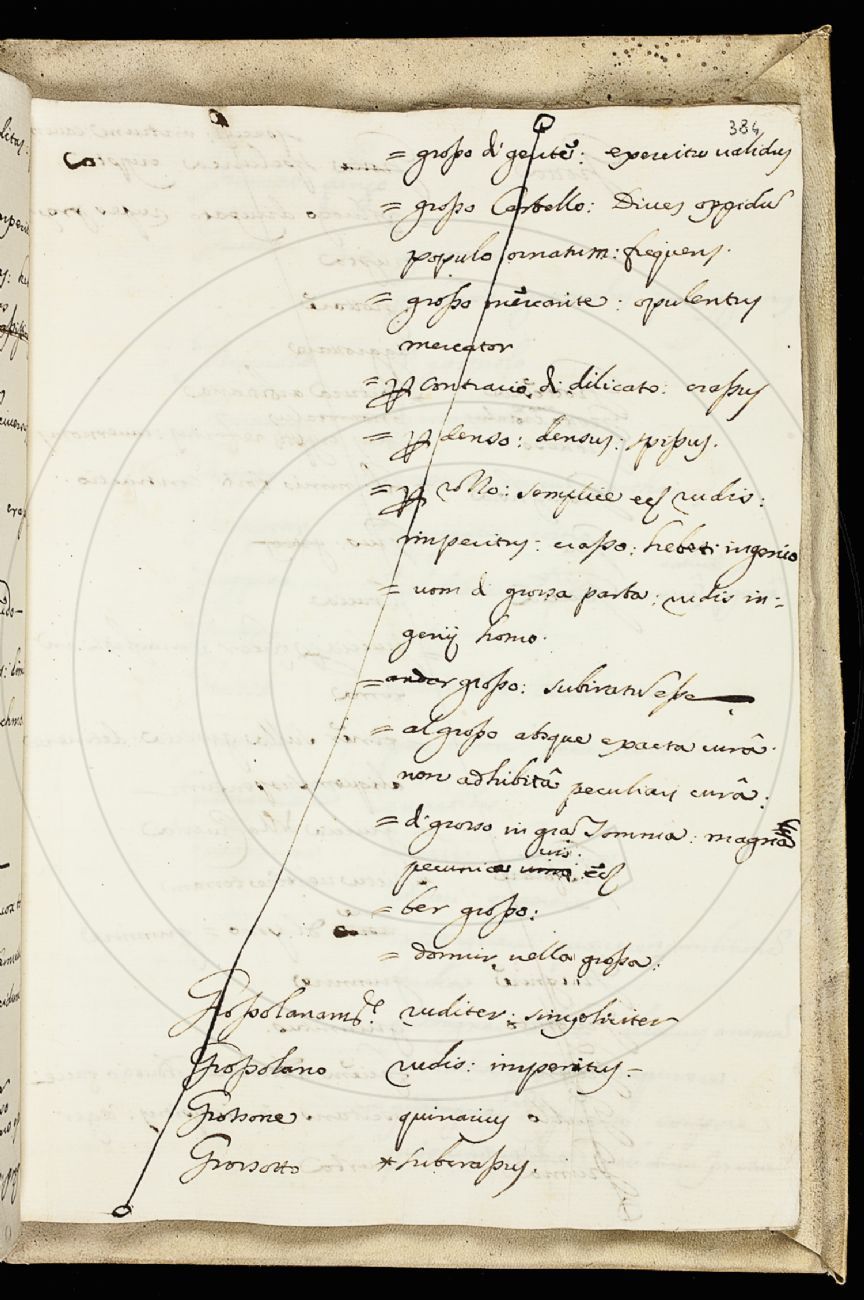 384
= grosso di gente: exercitu validus
= grosso Castello: Dives oppidu
populo ornatum: frequens.
= grosso mercante: opulentus
mercator
= p contrario di dilicato: crassus
= p denso: densus: spissus.
= p rozzo: semplice ecc rudis:
imperitus: crasso: hebeti ingenio
= uom di grossa pasta: rudis in=
genij homo.
= andar grosso: subiratu esse
= al grosso absque exacta curâ.
non adhibitâ peculiari curâ:
= di grosso in gra somma: magna
pecuniae vis: ecc
= ber grosso:
= dormir nella grossa:
Grossolanamte. ruditer: singoliriter
Grossolano rudis: imperitus-
Grossone quinarius
Grossotto *subcrassus.